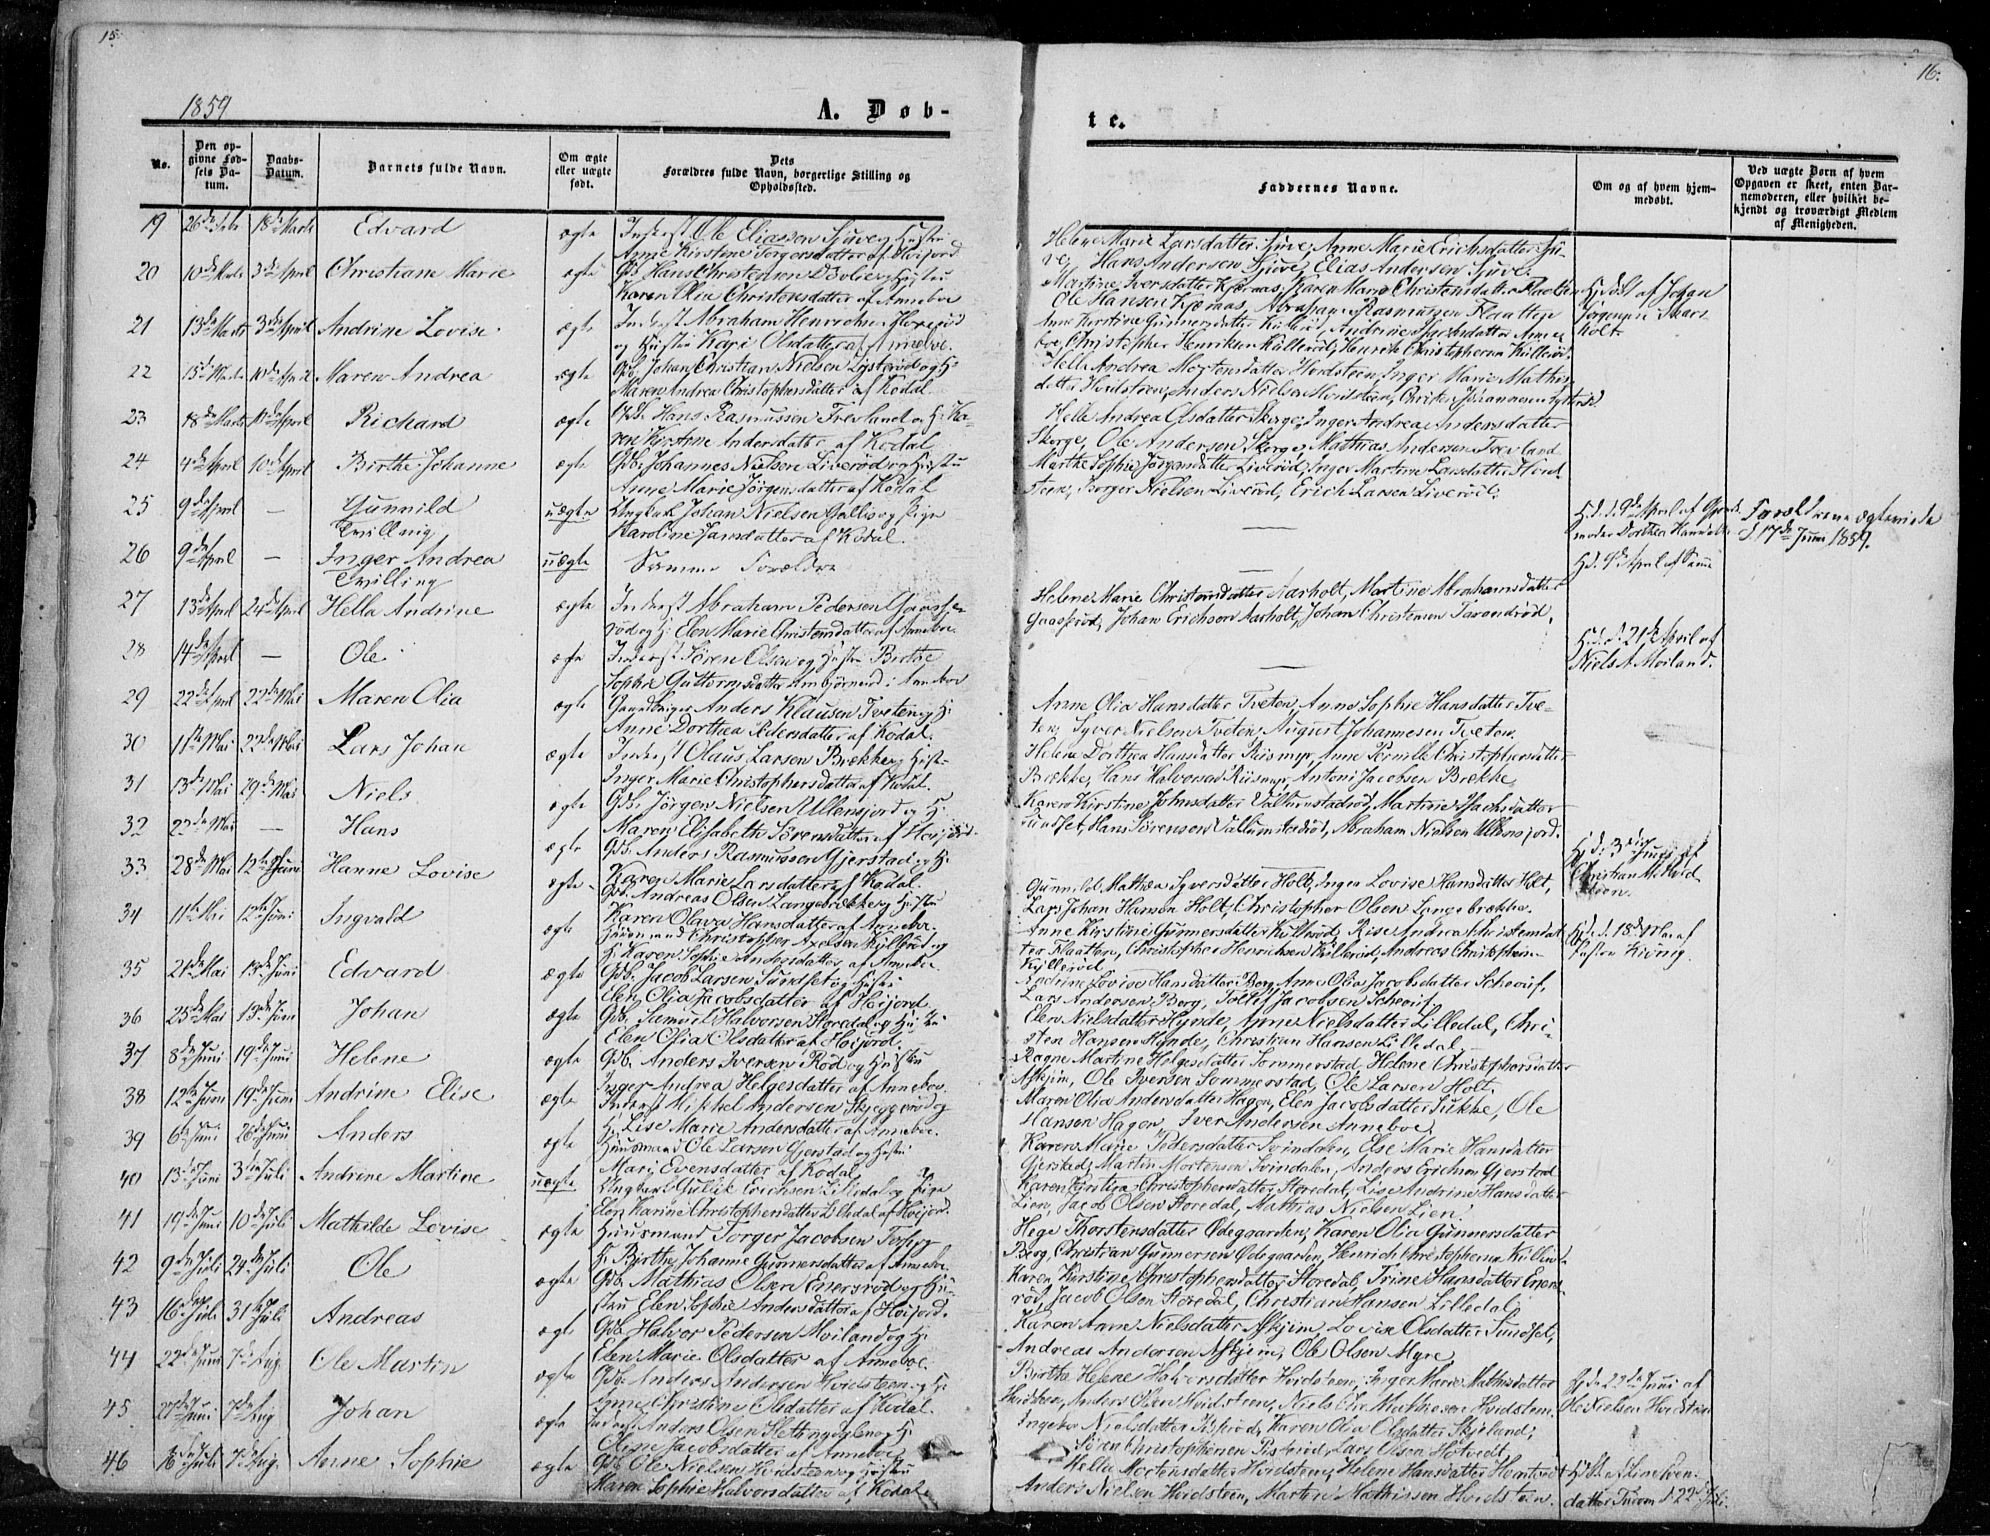 15.
1859
A. Døb-
No.
Den op-
givne Fød-
sels Da-
tum.
Daabs-
Datum.
Barnets fulde Navn.
Om ægte
eller uægte
født.
Dets
Forældres fulde Navn, borgerlige Stilling og
Opholdssted.
19 26de Febr 18de Marts Edvard ægte Inderst Ole Eliassen Sjuve og Hustru
Anne Kirstine Torgersdatter af Høijord
20 10de Marts 3de April Christiane Marie ægte Gb. Hans Christensen Bølie og Hustru
Karen Olia Christensdatter af Anneboe
21 13de Marts 3de April Andrine Lovise ægte Inderst Abraham Henrichsen
og Hustru Kari Olsdatter af Anneboe.
22 15de Marts 10de April Maren Andrea ægte Gb. Johan Christian Nielsen Lysterød og H:
Maren Andrea Christophersdatter af Kodal.
23 18de Marts April Richard ægte Gb. Hans Rasmussen Trevland og H: Ka-
ren Kirstine Andersdatter af Kodal.
24 4de April 10de April Birthe Johanne ægte Gb. Johannes Nielsen Liverød og Hustru
Anne Marie Jørgensdatter af Kodal
25 9de April — Gunnild uægte Ungkarl Johan Nielsen Gallis og Pige
Tvilling
Karoline Jansdatter af Kodal.
26 9de April — Inger Andrea uægte Samme Forældre
Tvilling
27 13de April 24de April Hella Andrine ægte Inderst Abraham Pedersen Gaasse-
rød og H: Elen Marie Christensdatter af Anneboe.
28 14de April — Ole ægte Inderst Søren Olsen og Hustru Birthe
Sophie Guttormsdatter i Anneboe
29 22de April 22de Mai Maren Olia ægte Gaardbruger Anders Klausen Tveten og H:
Anne Dorthea Pedersdatter af Kodal.
30 11te Mai 22de Mai Lars Johan ægte Inderst Olaus Larsen Brække og Hust-
Inger Marie Christophersdatter af Kodal.
31 13de Mai 29de Mai Niels ægte Gb. Jørgen Nielsen Ullensjord og H:
Maren Elisabeth Sørensdatter af Høijord.
32 22de Mai — Hans ægte Gb. Anders Rasmussen Gjerstad og H:
Karen Marie Larsdatter af Kodal.
33 28de Mai 12te Juni Hanne Lovise ægte Gb. Andreas Olsen Langebrække og Hustru
Karen Olava Hansdatter af Anneboe.
34 11te Mai 12te Juni Ingvald ægte Huusmand Christopher Axelsen Kyllerød og
H: Karen Sophie Andersdatter af Anneboe.
35 21de Mai 13de Juni Edvard ægte Gb. Jacob Larsen Sundset og Hustru
Elen Olia Jacobsdatter af Høijord.
36 25de Mai 19de Juni Johan ægte Gb. Samuel Halvorsen Storedal og Hustru
Elen Olia Olsdatter af Høijord.
37 8de Juni 19de Juni Helene ægte Gb. Anders Iversen Rød og Hustru
Inger Andrea Helgesdatter af Anneboe.
38 12te Juni 19de Juni Andrine Elise ægte Inderst Michel Andersen Skjeggerød og
H: Lise Marie Andersdatter af Anneboe.
39 6te Juni 26de Juni Anders ægte Huusmand Ole Larsen Gjerstad og Hustru
Mari Evensdatter af Kodal
40 13de Juni 3de Juli Andrine Martine uægte Ungkarl Gullik Erichsen Lilledal og Pige
Elen Karine Christophersdatter Lilledal af Høijord.
41 19de Juni 10de Juli Mathilde Lovise ægte Huusmand Torger Jacobsen Topp og
H: Birthe Johanne Gunnersdatter af Anneboe.
42 9de Juli 24de Juli Ole ægte Gb. Mathias Olsen Enersrød og Hu-
stru Elen Sophie Andersdatter af Høijord.
43 16de Juli 31te Juli Andreas ægte Gb. Halvor Pedersen Moiland og H:
Elen Marie Olsdatter af Anneboe.
44 22de Juni 7de Aug. Ole Martin ægte Gb. Anders Andersen Hvidsteen og H:
Anne Christine Olsdatter af Kodal.
45 27de Juni 7de Aug Johan ægte Inderst Anders Olsen og H:
Oline Jacobsdatter af Anneboe
46 16de Juli 7de Aug. Anne Sophie ægte Gb. Ole Nielsen Hvidsteen og Hustru
Karen Sophie Halvorsdatter af Kodal.
16.
te.
Faddernes Navne.
Om og af hvem hjem-
medøbt.
Ved uægte Børn af hvem
Opgaven er skeet, enten Bar-
nemoderen, eller hvilket be-
kjendt og troværdigt Medlem
af Menigheden.
Helene Marie Larsdatter Sjuve, Anne Marie Erichsdatter Sju-
ve, Hans Andersen Sjuve, Elias Andersen Sjuve.
Martine Iversdatter Kjærnaas, Karen Marie Christensdatter Flaatten
Ole Hansen Kjærnaas, Abraham Rasmussen Flaatten
Hjdøbt af Johan
Jørgensen Skars-
holt.
Anne Kirstine Gunnersdatter Kullerød, Andrine Isacksdatter Anne-
boe, Christopher Henriksen Küllerød, Henrik Christophersen Küllerød.
Helle Andrea Mortensdatter Hvidsteen, Inger Marie Mathis-
datter Hvidsteen, Anders Nielsen Hvidsteen, Christen Johannesen
Helle Andrea Olsdatter Skorge, Inger Andrea Andersdatter
Skorge, Ole Andersen Skorge, Mathias Andersen Trevland
Marthe Sophie Jørgensdatter Liverød, Inger Martine Larsdatter Hvid-
steen, Borger Nielsen Liverød, Erich Larsen Liverød.
— Hd. d. 9de April af Gjord-
emoder Dorthea Forældrene ægteviede
d. 17de Juni 1859.
— Hd. 9de April af Samme
Helene Marie Christensdatter Aarholt, Martine Abrahamsdatter
Gaasserød, Johan Erichsen Aarholt, Johan Christensen Taranrød.
— Hj. d. 21de April af
Niels A. Moiland.
Anne Olia Hansdatter Tveten, Anne Sophie Hansdatter Tve-
ten, Syver Nielsen Tveten, August Johannesen Tveten.
Helene Dorthea Hansdatter Riismyr, Anne Pernille Christophersdatter
Brække, Hans Halvorsen Riismyr, Antoni Jacobsen Brække
Karen Kirstine Johnsdatter Vallumstadrød, Martine Isachsdatter
Sundset, Hans Sørensen Vallumstadrød, Abraham Nielsen Ullensjord.
— Hj. d. 3die Juni af
Christian M. Hvid-
steen.
Gunnild Mathea Syversdatter Holt, Inger Lovise Hansdatter Holt,
Lars Johan Hansen Holt, Christopher Olsen Langebrække.
Anne Kirstine Gunnersdatter Küllerød, Rise Andrea Christensdat-
ter Flaatten, Christopher Henrichsen Küllerød, Andreas Christophersen
Kyllerød
Hj. d. 18de Mai af
Pastor Kiønig.
Andrine Lovise Hansdatter Berg, Anne Olia Jacobsdatter Scheauf,
Lars Andersen Berg, Tollef Jacobsen Scheauf.
Elen Nielsdatter Hynde, Anne Nielsdatter Lilledal, Chri-
sten Hansen Hynde, Christian Hansen Lilledal
Ragne Martine Helgesdatter Sommerstad, Helene Christophersdatter
Askjem, Ole Iversen Sommerstad, Ole Larsen Holt.
Maren Olia Andersdatter Hagen, Elen Jacobsdatter Sukke, Ole
Hansen Hagen, Iver Andersen Anneboe.
Karen Marie Pedersdatter Svindalen, Else Marie Hansdatter
Gjerstad, Martin Mortensen Svindalen, Anders Erichsen Gjerstad
Karen Kirstine Christophersdatter Storedal, Lise Andrine Hansdatter
Lien, Jacob Olsen Storedal, Mathias Nielsen Lien.
Hege Thorstensdatter Ødegaarden, Karen Olia Gunnersdatter
Berg, Christian Gunnersen Ødegaarden, Henrich Christophersen Küllerød.
Karen Kirstine Christophersdatter Storedal, Trine Hansdatter Eners-
rød, Jacob Olsen Storedal, Christian Hansen Lilledal.
Karen Anne Nielsdatter Askjem, Lovise Olsdatter Sundset,
Andreas Andersen Askjem, Ole Olsen Myre
Birthe Helene Halvorsdatter Hvidsteen, Inger Marie Mathisdatter
Hvidsteen, Anders Olsen Hvidsteen, Niels Chr. Mathisen Hvidsteen.
Hj. d. 22de Juni af
Ole Nielsen Hvidsteen
Ingebor Nielsdatter Pisserød, Karen Olia Olsdatter Skjeland,
Søren Christophersen Pisserød, Lars Olsen Høtvedt.
Helle Mortensdatter Hvidsteen, Helene Hansdatter
Anders Nielsen Hvidsteen, Martin Mathissen Hvidsteen.
Hjdøbt af Line Sven-
datter Tveten d. 22de Juli.